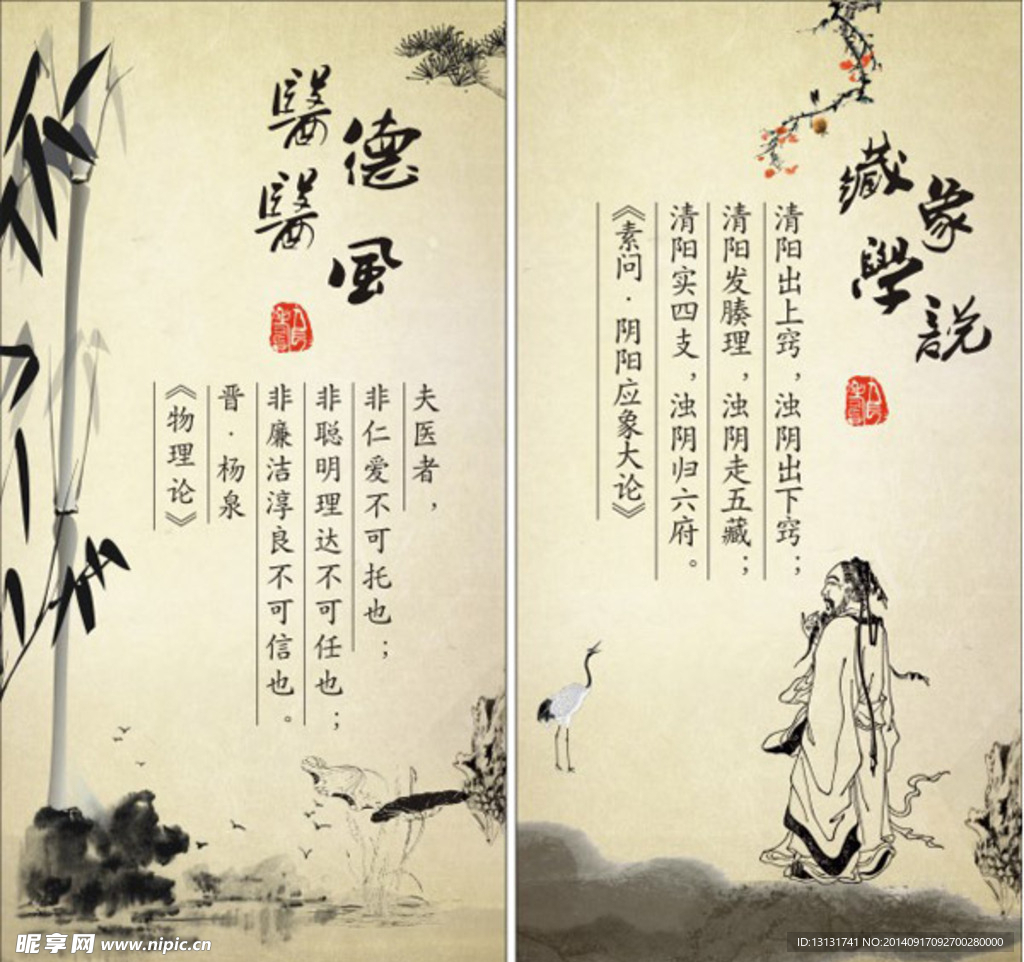 醫德
醫風
夫医者，
非仁爱不可托也；
非聪明理达不可任也；
非廉洁淳良不可信也。
晋·杨泉
《物理论》
藏象
學説
清阳出上窍，浊阴出下窍；
清阳发腠理，浊阴走五藏；
清阳实四支，浊阴归六府。
《素问·阴阳应象大论》
昵享网 www.nipic.cn
ID:13131741 NO:20140917092700280000